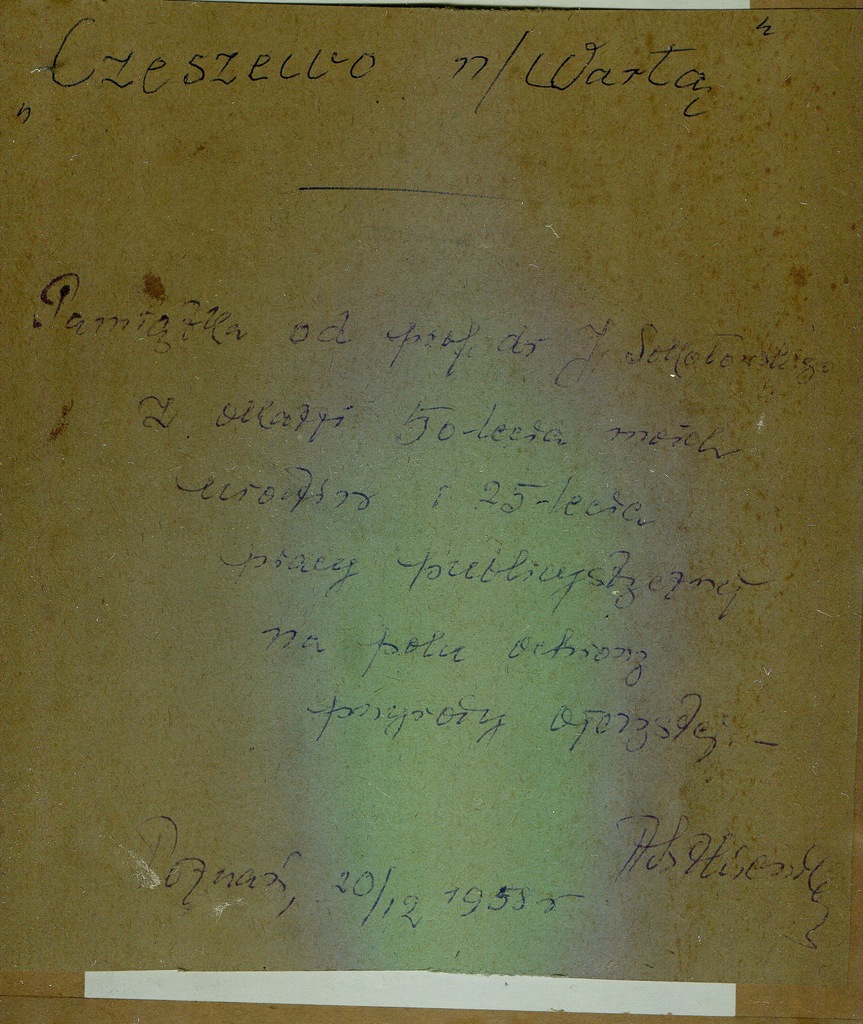 „Częszewo n/Wartą"
Pamiątka od prof. dr J. Sokołowskiego
z okazji 50-lecia moich
urodzin i 25-lecia
pracy publicystycznej
na polu ochrony
przyrody ojczystej. —
Poznań, 20/12 1958 r